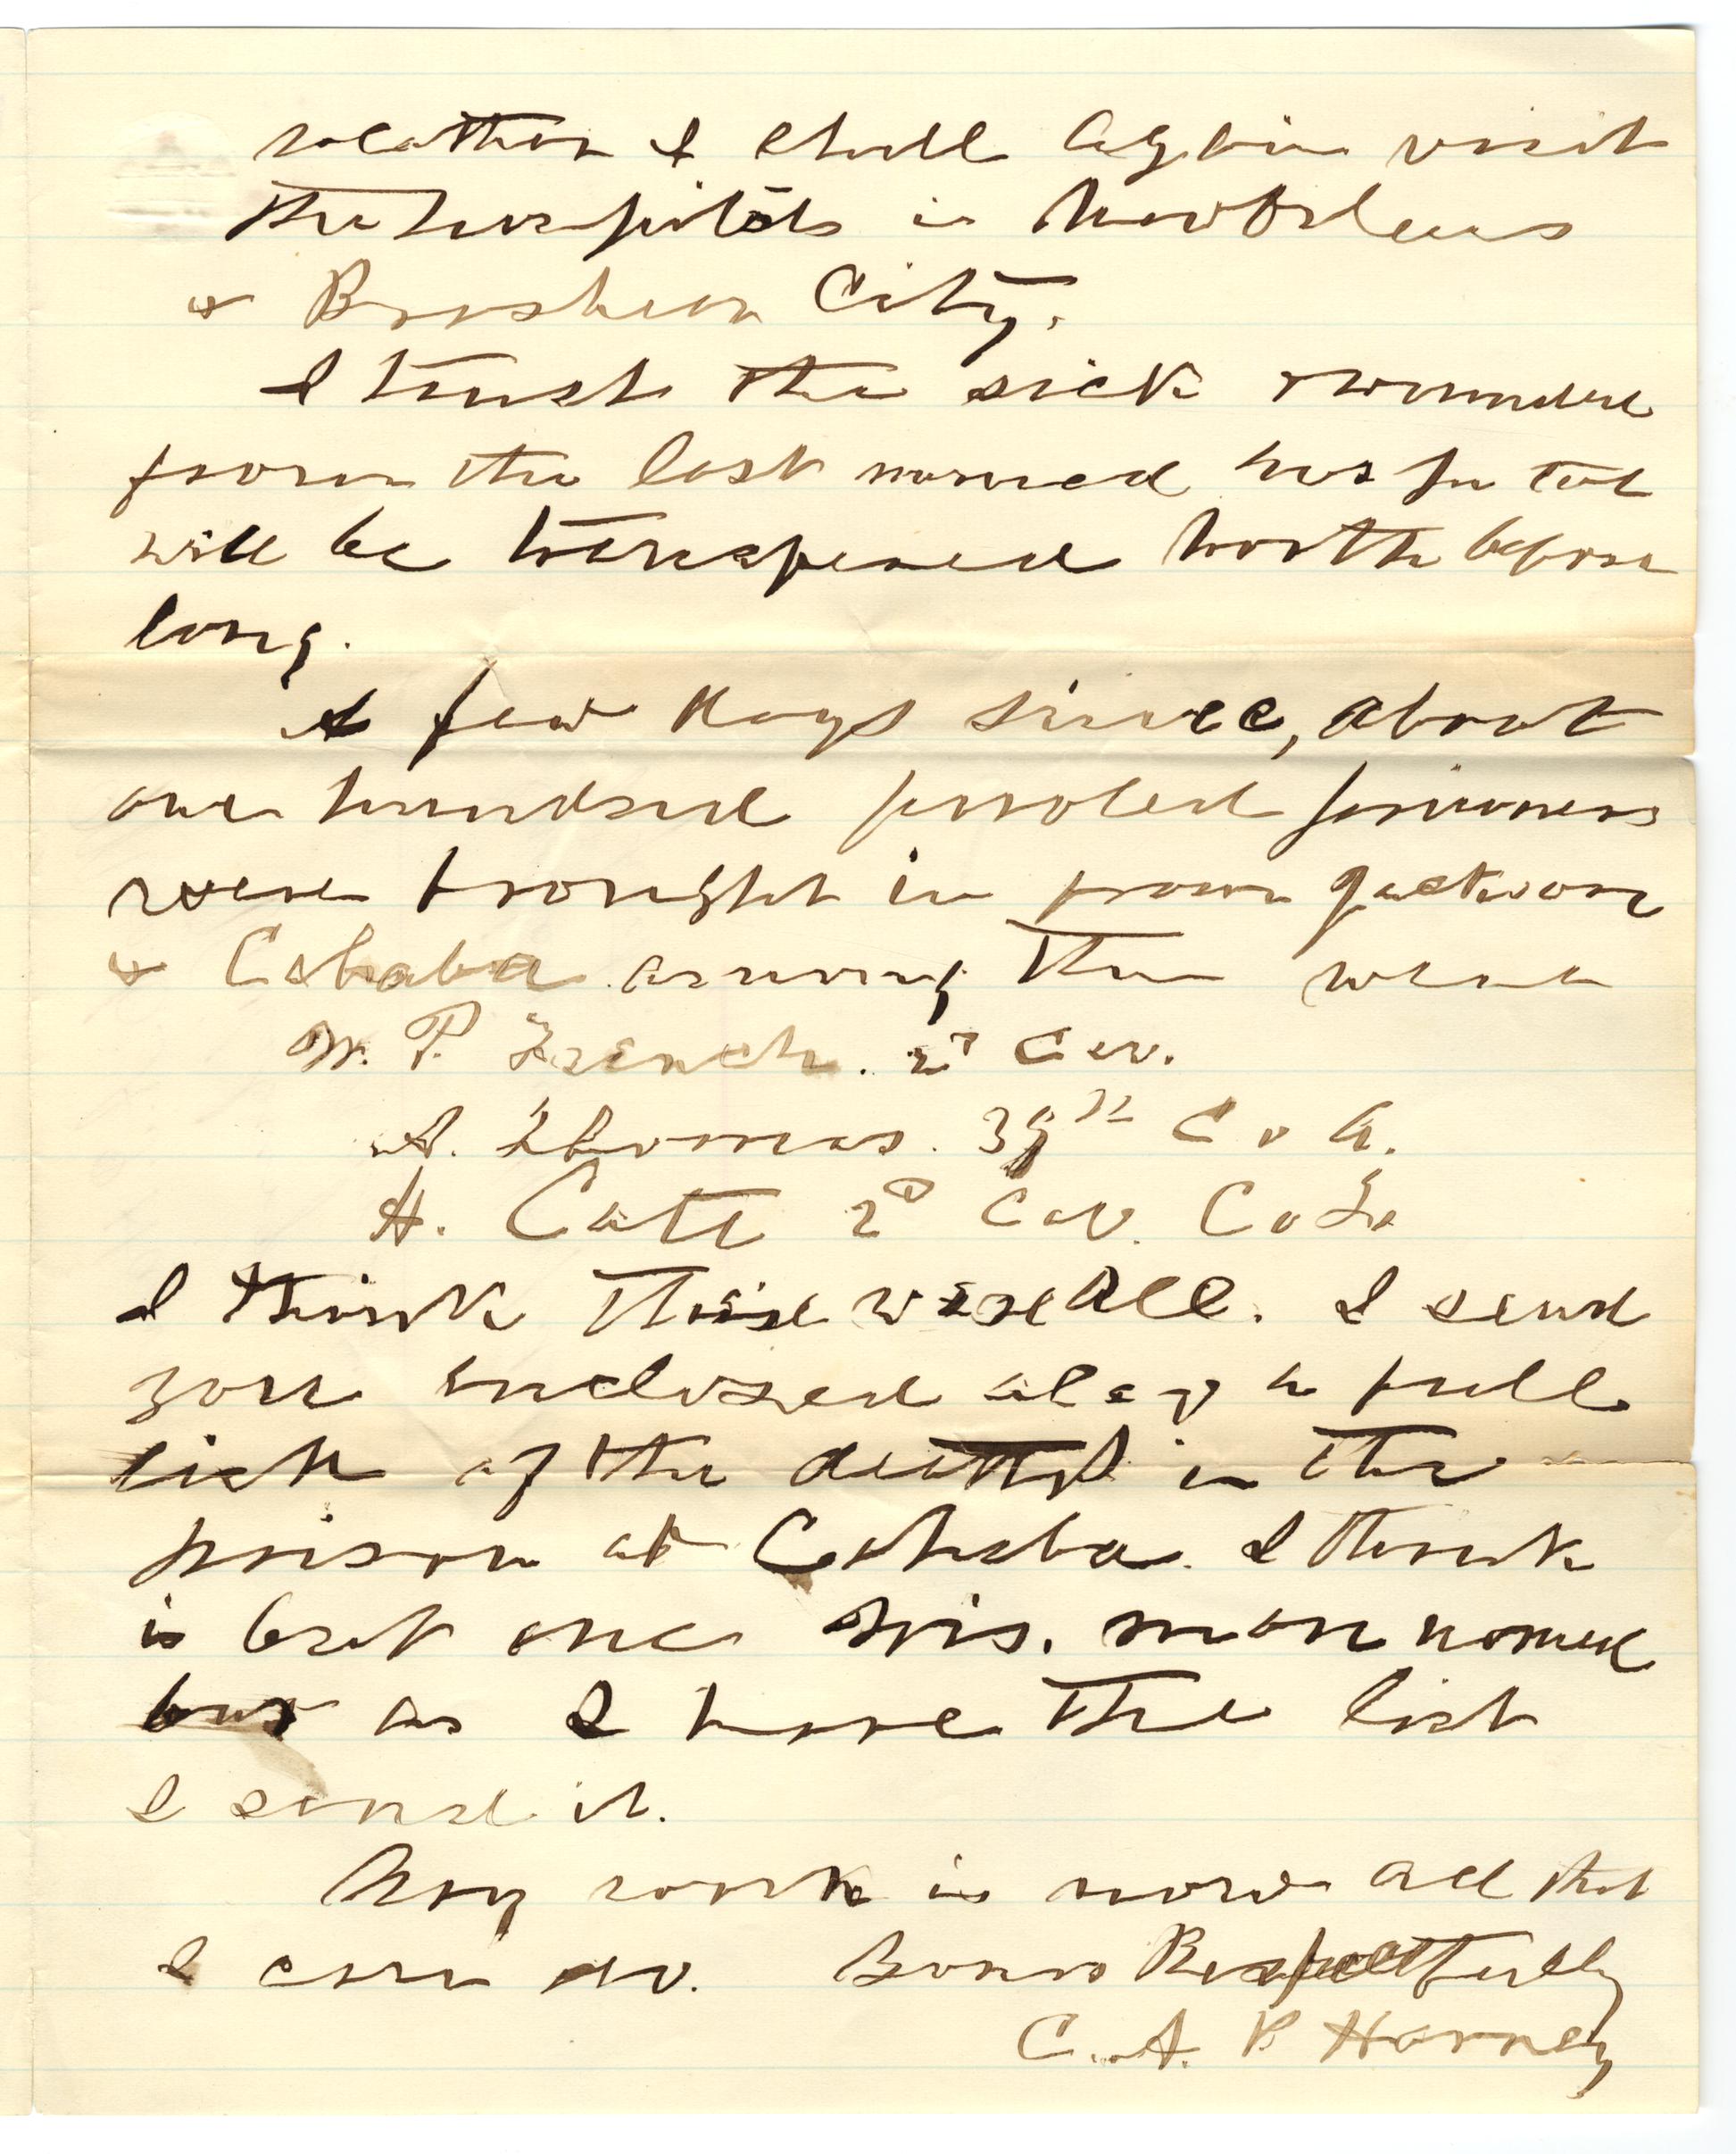 weather I shall again visit
the hospitals in New Orleans
& Brashear City.
I trust the sick & wounded
from the last named hospital
will be transfered North before
long.
A few days since, about
one hundred paroled prisoners
were brought in from Jackson
& Cahaba among them were
W. P. French. 2d Cav.
A. Thomas. 39th Co A.
H. Catt 2d Cav. Co
I think these were all. I send
you enclosed also a full
list of the deaths in the
prison at Cahaba. I think
is but one Wis. man named
but as I have the list
I send it.
My work is now all that
I can do. Yours Respectfully
C. A. P. Harvey